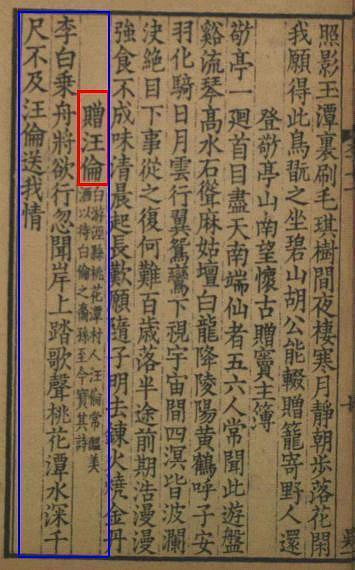 照影玉潭裏刷毛琪樹間夜棲寒月靜朝步落花閑
我願得此鳥翫之坐碧山胡公能輟贈籠寄野人還
登敬亭山南望懷古贈竇主簿
敬亭一廻首目盡天南端仙者五六人常聞此遊盤
谿流琴高水石聳麻姑壇白龍降陵陽黃鶴呼子安
羽化騎日月雲行翼鴛鸞下視宇宙間四溟皆波瀾
決絕目下事從之復何難百歲落半途前期浩漫漫
強食不成味清晨起長歎願隨子明去鍊火燒金丹
贈汪倫
白游涇縣桃花潭村人汪倫常醞美
酒以待白倫之裔孫至今寶其詩
李白乘舟將欲行忽聞岸上踏歌聲桃花潭水深千
尺不及汪倫送我情